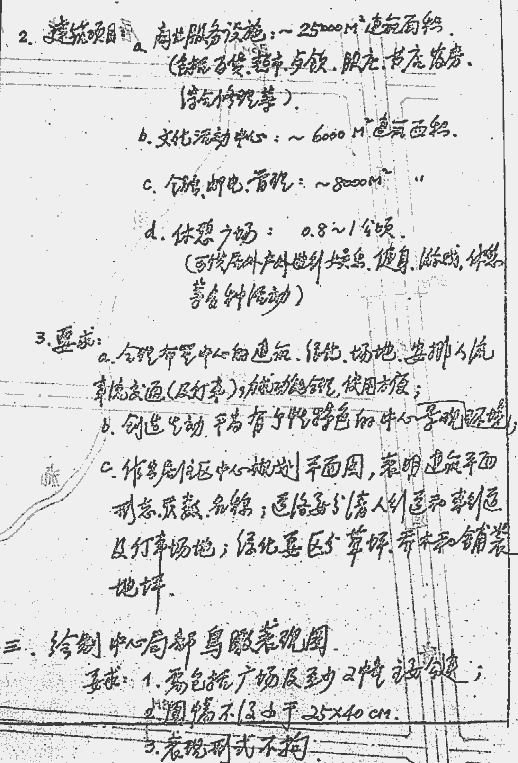 2. 建筑项目 a. 商业服务设施:~25000M²建筑面积.
(包括百货、超市、餐饮、服店、书店、发房、
综合修理等).
b. 文化活动中心:~6000M²建筑面积.
c. 金融、邮电、管理:~8000M² 〃
d. 休憩广场: 0.8~1公顷.
(可供居民户外娱乐、健身、游戏、休憩
等各种活动)
3. 要求:
a. 合理布置中心的建筑、绿化、场地、安排人流
车流交通(及停车),功能合理,使用方便;
b. 创造生动、富有个性特色的中心景观环境;
c. 作出居住区中心规划平面图,表明建筑平面
形态、层数、名称;道路要分清人行道和车行道
及停车场地;绿化要区分草坪、乔木和铺装
地坪.
三. 绘制中心局部鸟瞰表现图.
要求: 1. 需包括广场及至少2幢主要建筑;
2. 图幅不得小于25×40cm.
3. 表现形式不拘